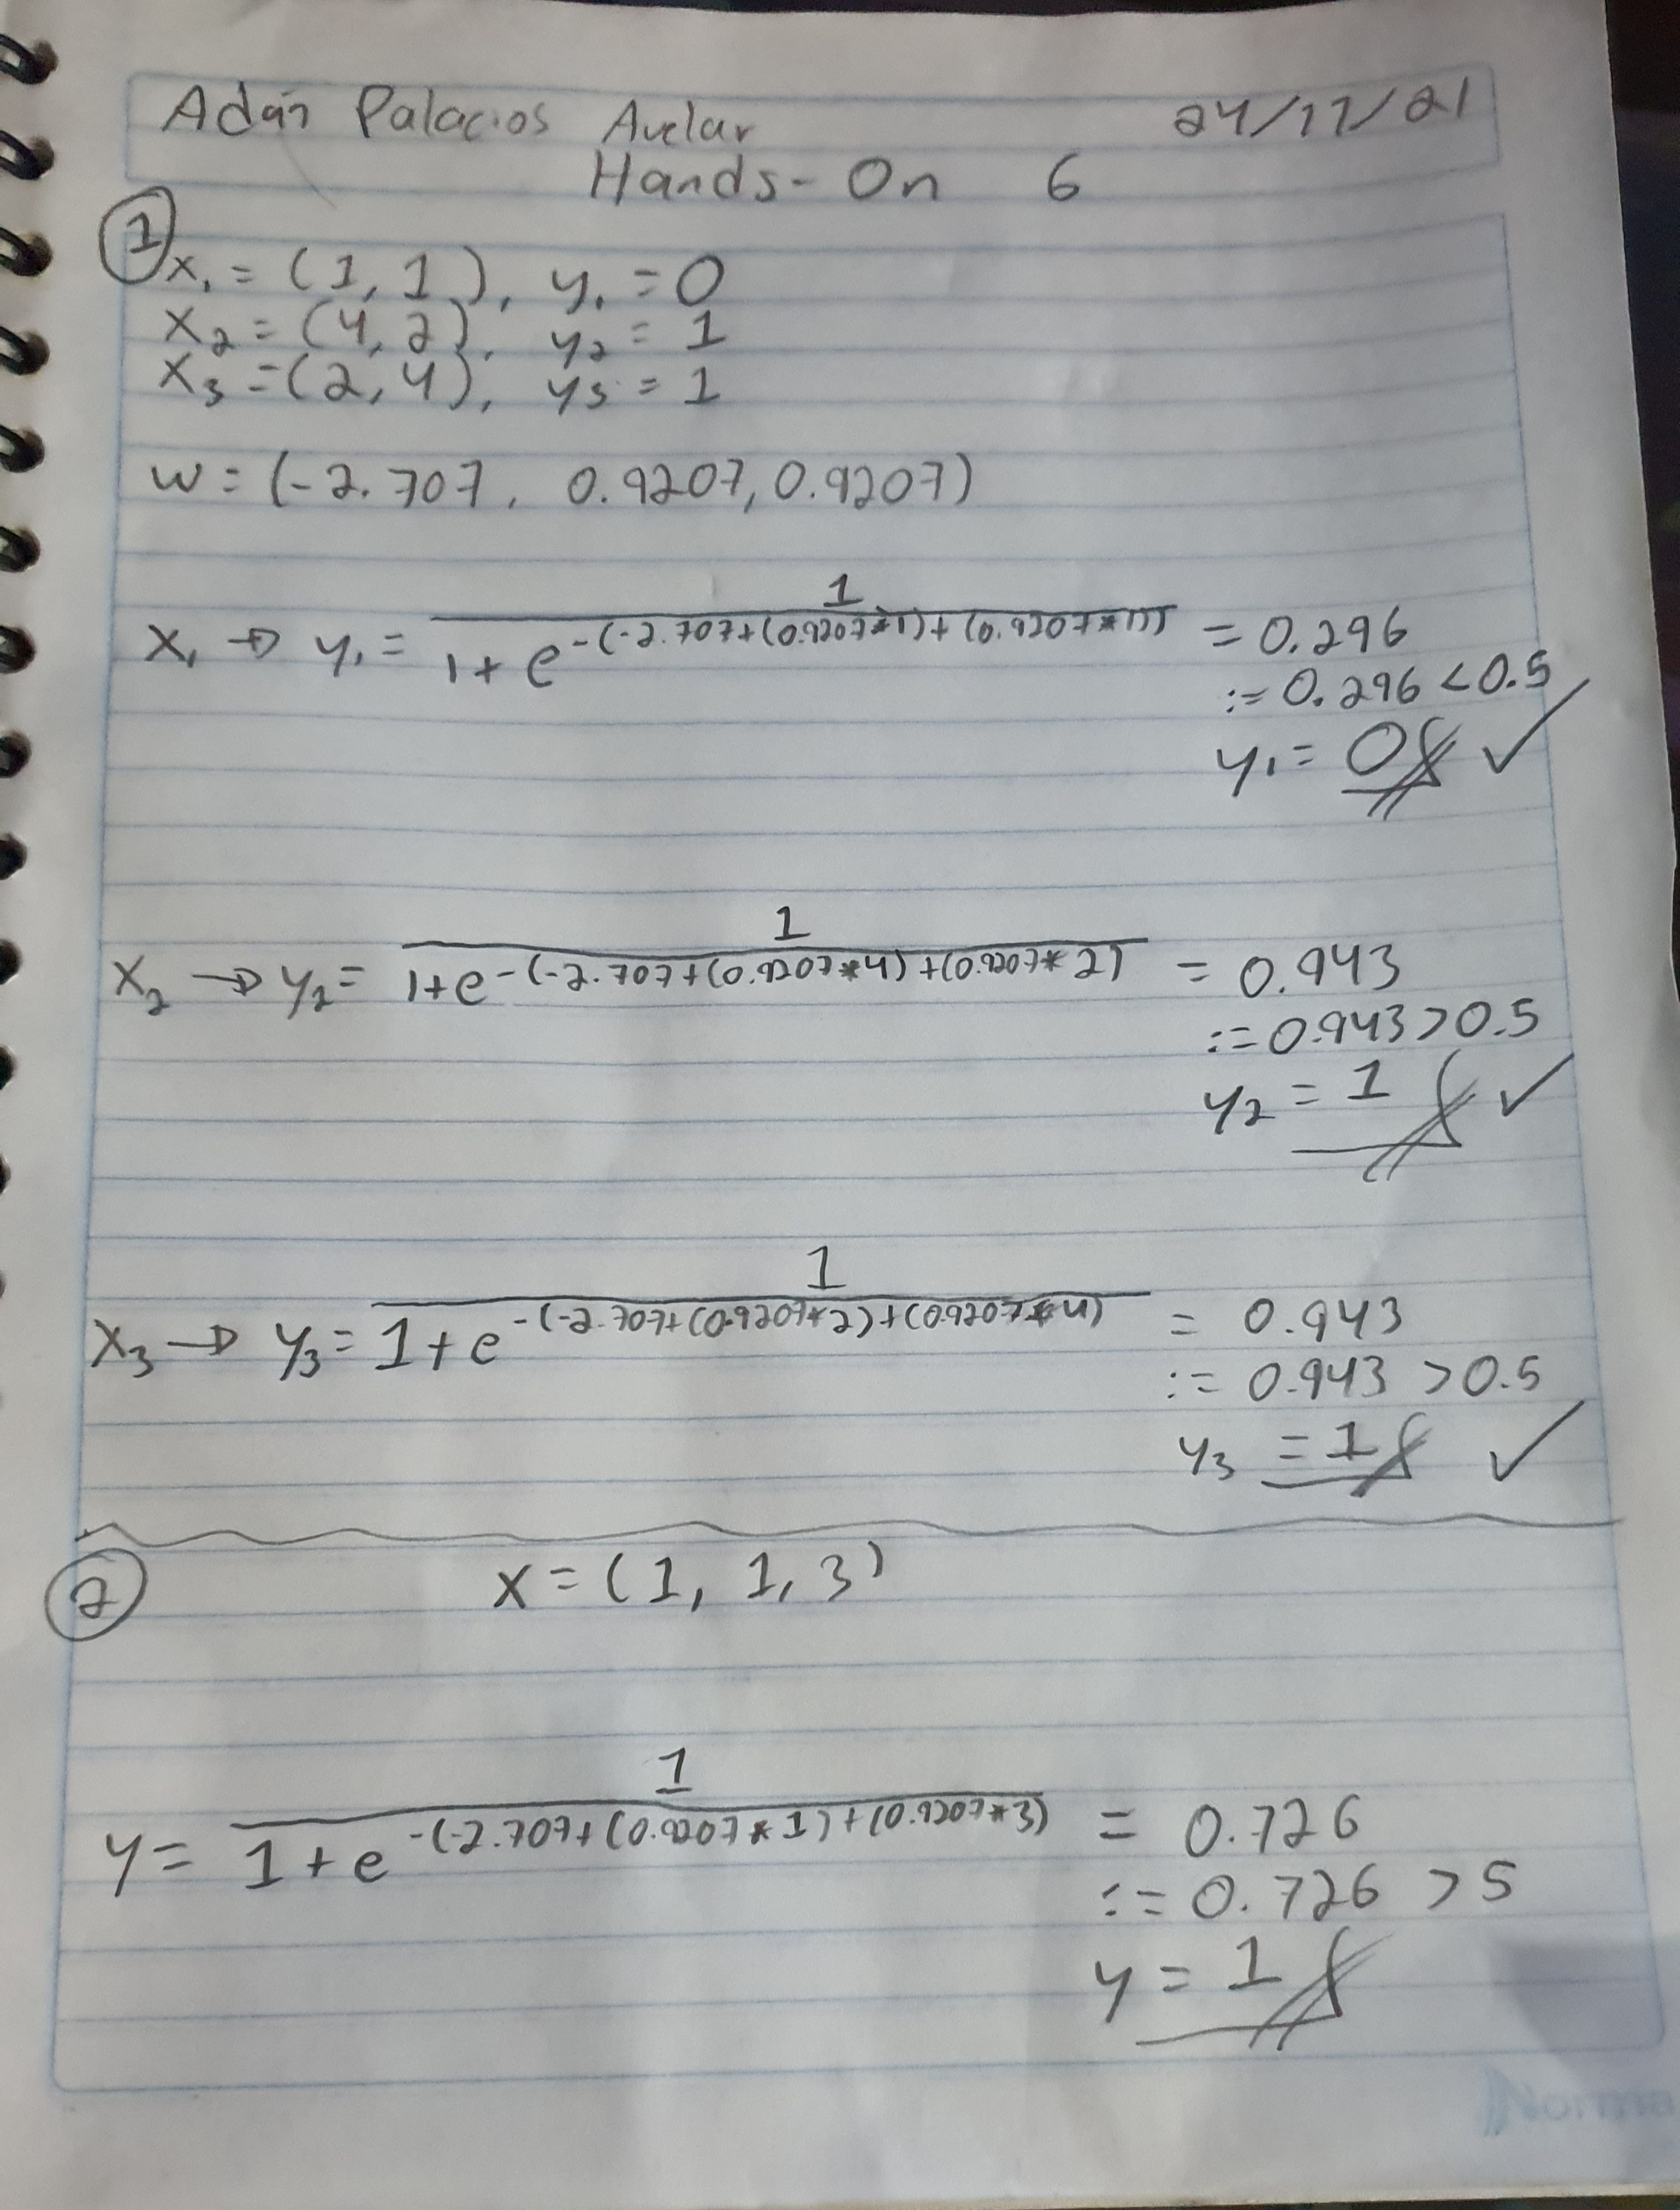 Adán Palacios Avelar 24/11/21
Hands-On 6
1
x₁ = (1, 1), y₁ = 0
x₂ = (4, 2), y₂ = 1
x₃ = (2, 4), y₃ = 1
w = (-2.707, 0.9207, 0.9207)
1
x₁ → y₁ = 1 + e^-(-2.707+(0.9207*1)+(0.9207*1)) = 0.296
:= 0.296 < 0.5
y₁ = 0 ✓
1
x₂ → y₂ = 1+e^-(-2.707+(0.9207*4)+(0.9207*2) = 0.943
:= 0.943 > 0.5
y₂ = 1 ✓
1
x₃ → y₃ = 1 + e^-(-2.707+(0.9207*2)+(0.9207*4) = 0.943
:= 0.943 > 0.5
y₃ = 1 ✓
2 x = (1, 1, 3)
1
y = 1 + e^-(-2.707+(0.9207*1)+(0.9207*3) = 0.726
:= 0.726 > 5
y = 1
Norma